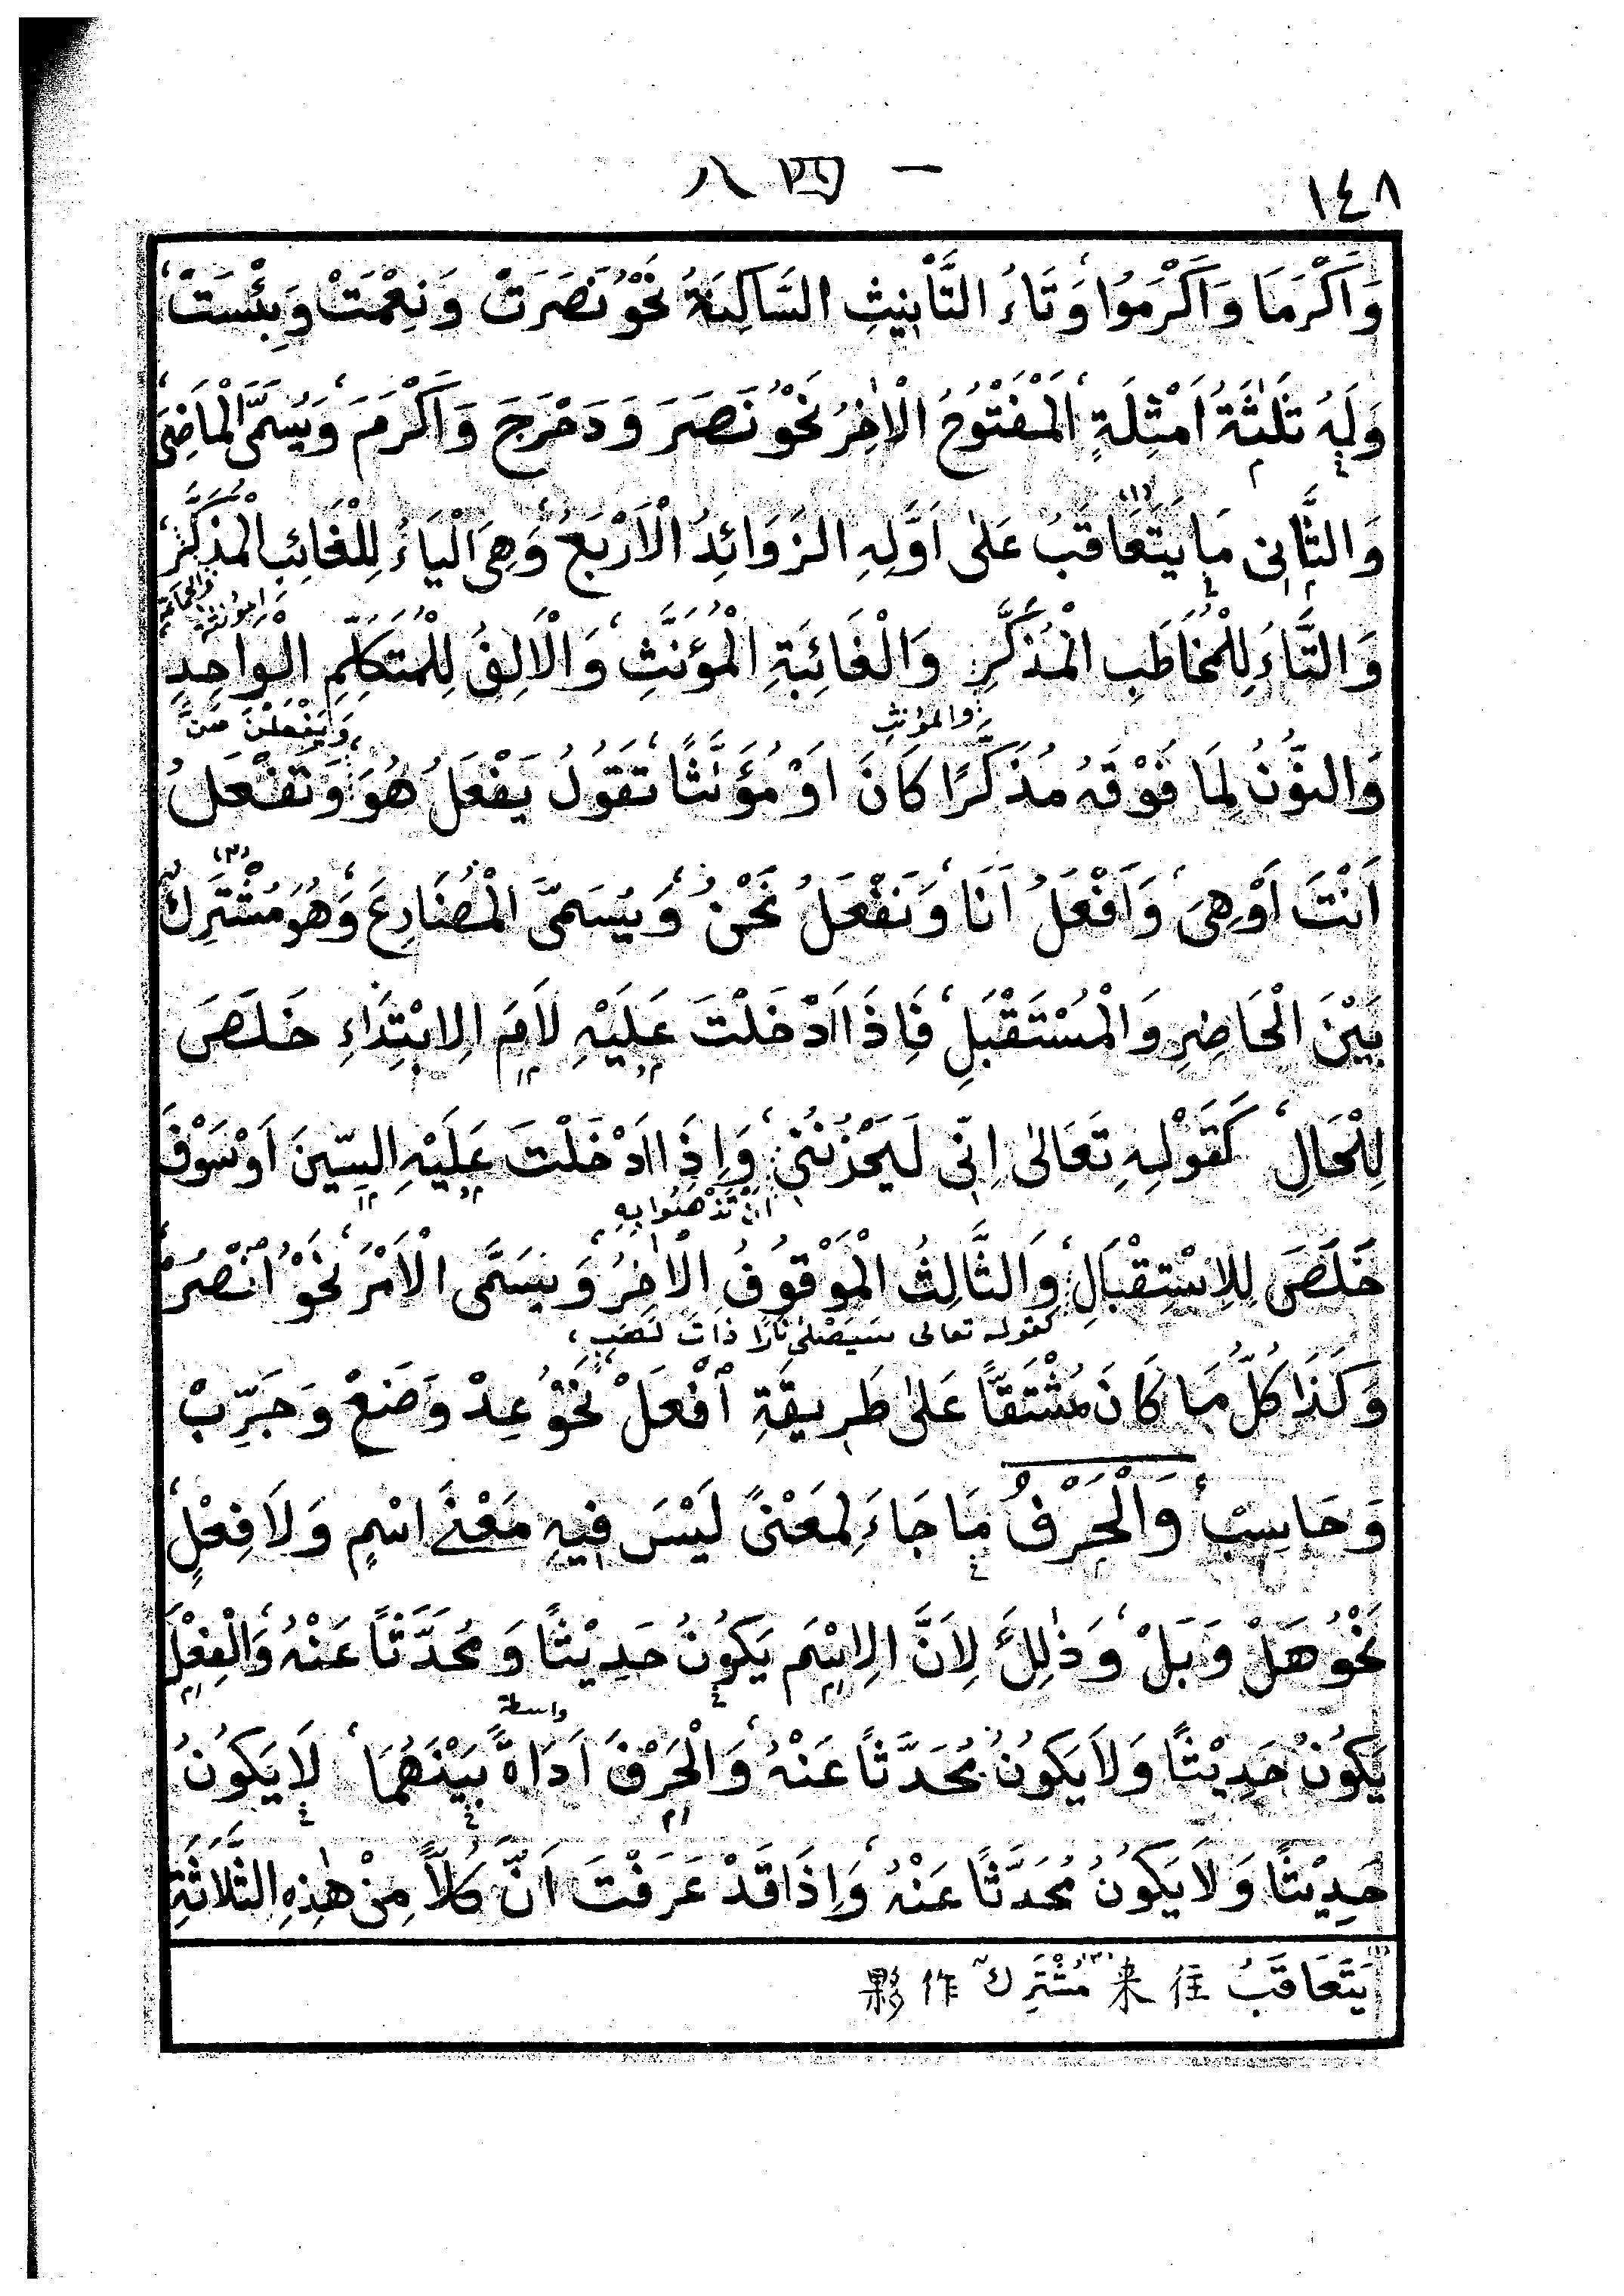 ١٤٨
一 四 八
وَاَكْرَمَا وَاَكْرَمُوا وَتَاءُ التَّأْنِيثِ السَّاكِنَةُ نَحْوُ نَصَرَتْ وَنِعْمَتْ وَبِئْسَتْ
وَلَهُ ثَلٰثَةُ اَمْثِلَةٍ اَلْمَفْتُوحُ الْاٰخِرُ نَحْوُ نَصَرَ وَدَحْرَجَ وَاَكْرَمَ وَيُسَمَّى الْمَاضِيَ
وَالثَّانِى مَا يَتَعَاقَبُ (١) عَلٰى اَوَّلِهِ الزَّوَائِدُ الْاَرْبَعُ وَهِىَ الْيَاءُ لِلْغَائِبِ الْمُذَكَّرِ
وَالتَّاءُ لِلْمُخَاطَبِ الْمُذَكَّرِ وَالْغَائِبَةِ الْمُؤَنَّثِ وَالْاَلِفُ لِلْمُتَكَلِّمِ الْوَاحِدِ
والمؤنثِ
وَيَفْعَلْنَ هُنَّ
وَالنُّوْنُ لِمَا فَوْقَهُ مُذَكَّرًا كَانَ اَوْ مُؤَنَّثًا تَقُولُ يَفْعَلُ هُوَ وَتَفْعَلُ
اَنْتَ اَوْهِىَ وَاَفْعَلُ اَنَا وَنَفْعَلُ نَحْنُ وَيُسَمَّى الْمُضَارِعَ وَهُوَ مُشْتَرِكٌ (٢)
بَيْنَ الْحَاضِرِ وَالْمُسْتَقْبَلِ فَاِذَا اَدْخَلْتَ عَلَيْهِ لَامَ الِابْتِدَاءِ خَلَصَ
لِلْحَالِ كَقَوْلِهِ تَعَالٰى اِنِّى لَيَحْزُنُنِى وَاِذَا اَدْخَلْتَ عَلَيْهِ السِّينَ اَوْسَوْفَ
اَنْ تَذْهَبُوا بِهِ
خَلَصَ لِلِاسْتِقْبَالِ وَالثَّالِثُ الْمَوْقُوفُ الْاٰخِرُ وَيُسَمَّى الْاَمْرُ نَحْوُ اُنْصُرْ
كقوله تعالى سَيَصْلٰى نَارًا ذَاتَ لَهَبٍ
وَكَذَا كُلُّ مَا كَانَ مُشْتَقًّا عَلٰى طَرِيقَةِ اَفْعَلْ نَحْوُ عِدْ وَضَعْ وَجَرِّبْ
وَحَاسِبْ وَالْحَرْفُ مَا جَاءَ لِمَعْنًى لَيْسَ فِيهِ مَعْنَے اسْمٍ وَلَا فِعْلٍ
نَحْوُ هَلْ وَبَلْ وَذٰلِكَ لِاَنَّ الِاسْمَ يَكُوْنُ حَدِيْثًا وَمُحَدَّثًا عَنْهُ وَالْفِعْلَ
واسطة
يَكُوْنُ حَدِيْثًا وَلَا يَكُوْنُ مُحَدَّثًا عَنْهُ وَالْحَرْفَ اَدَاةٌ بَيْنَهُمَا لَا يَكُوْنُ
حَدِيْثًا وَلَا يَكُوْنُ مُحَدَّثًا عَنْهُ وَاِذَا قَدْ عَرَفْتَ اَنَّ كُلًّا مِنْ هٰذِهِ الثَّلَاثَةِ
(١) يَتَعَاقَبُ 往 来 (٢) مُشْتَرِكٌ 作 夥